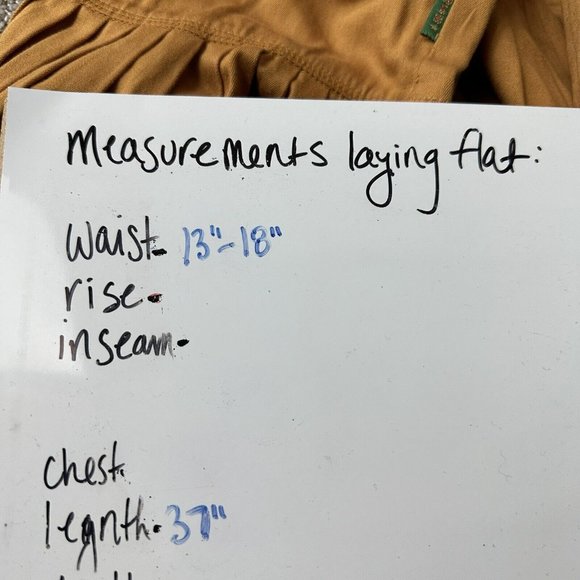 Measurements laying flat:
waist- 13"-18"
rise-
inseam-
chest-
legnth- 37"